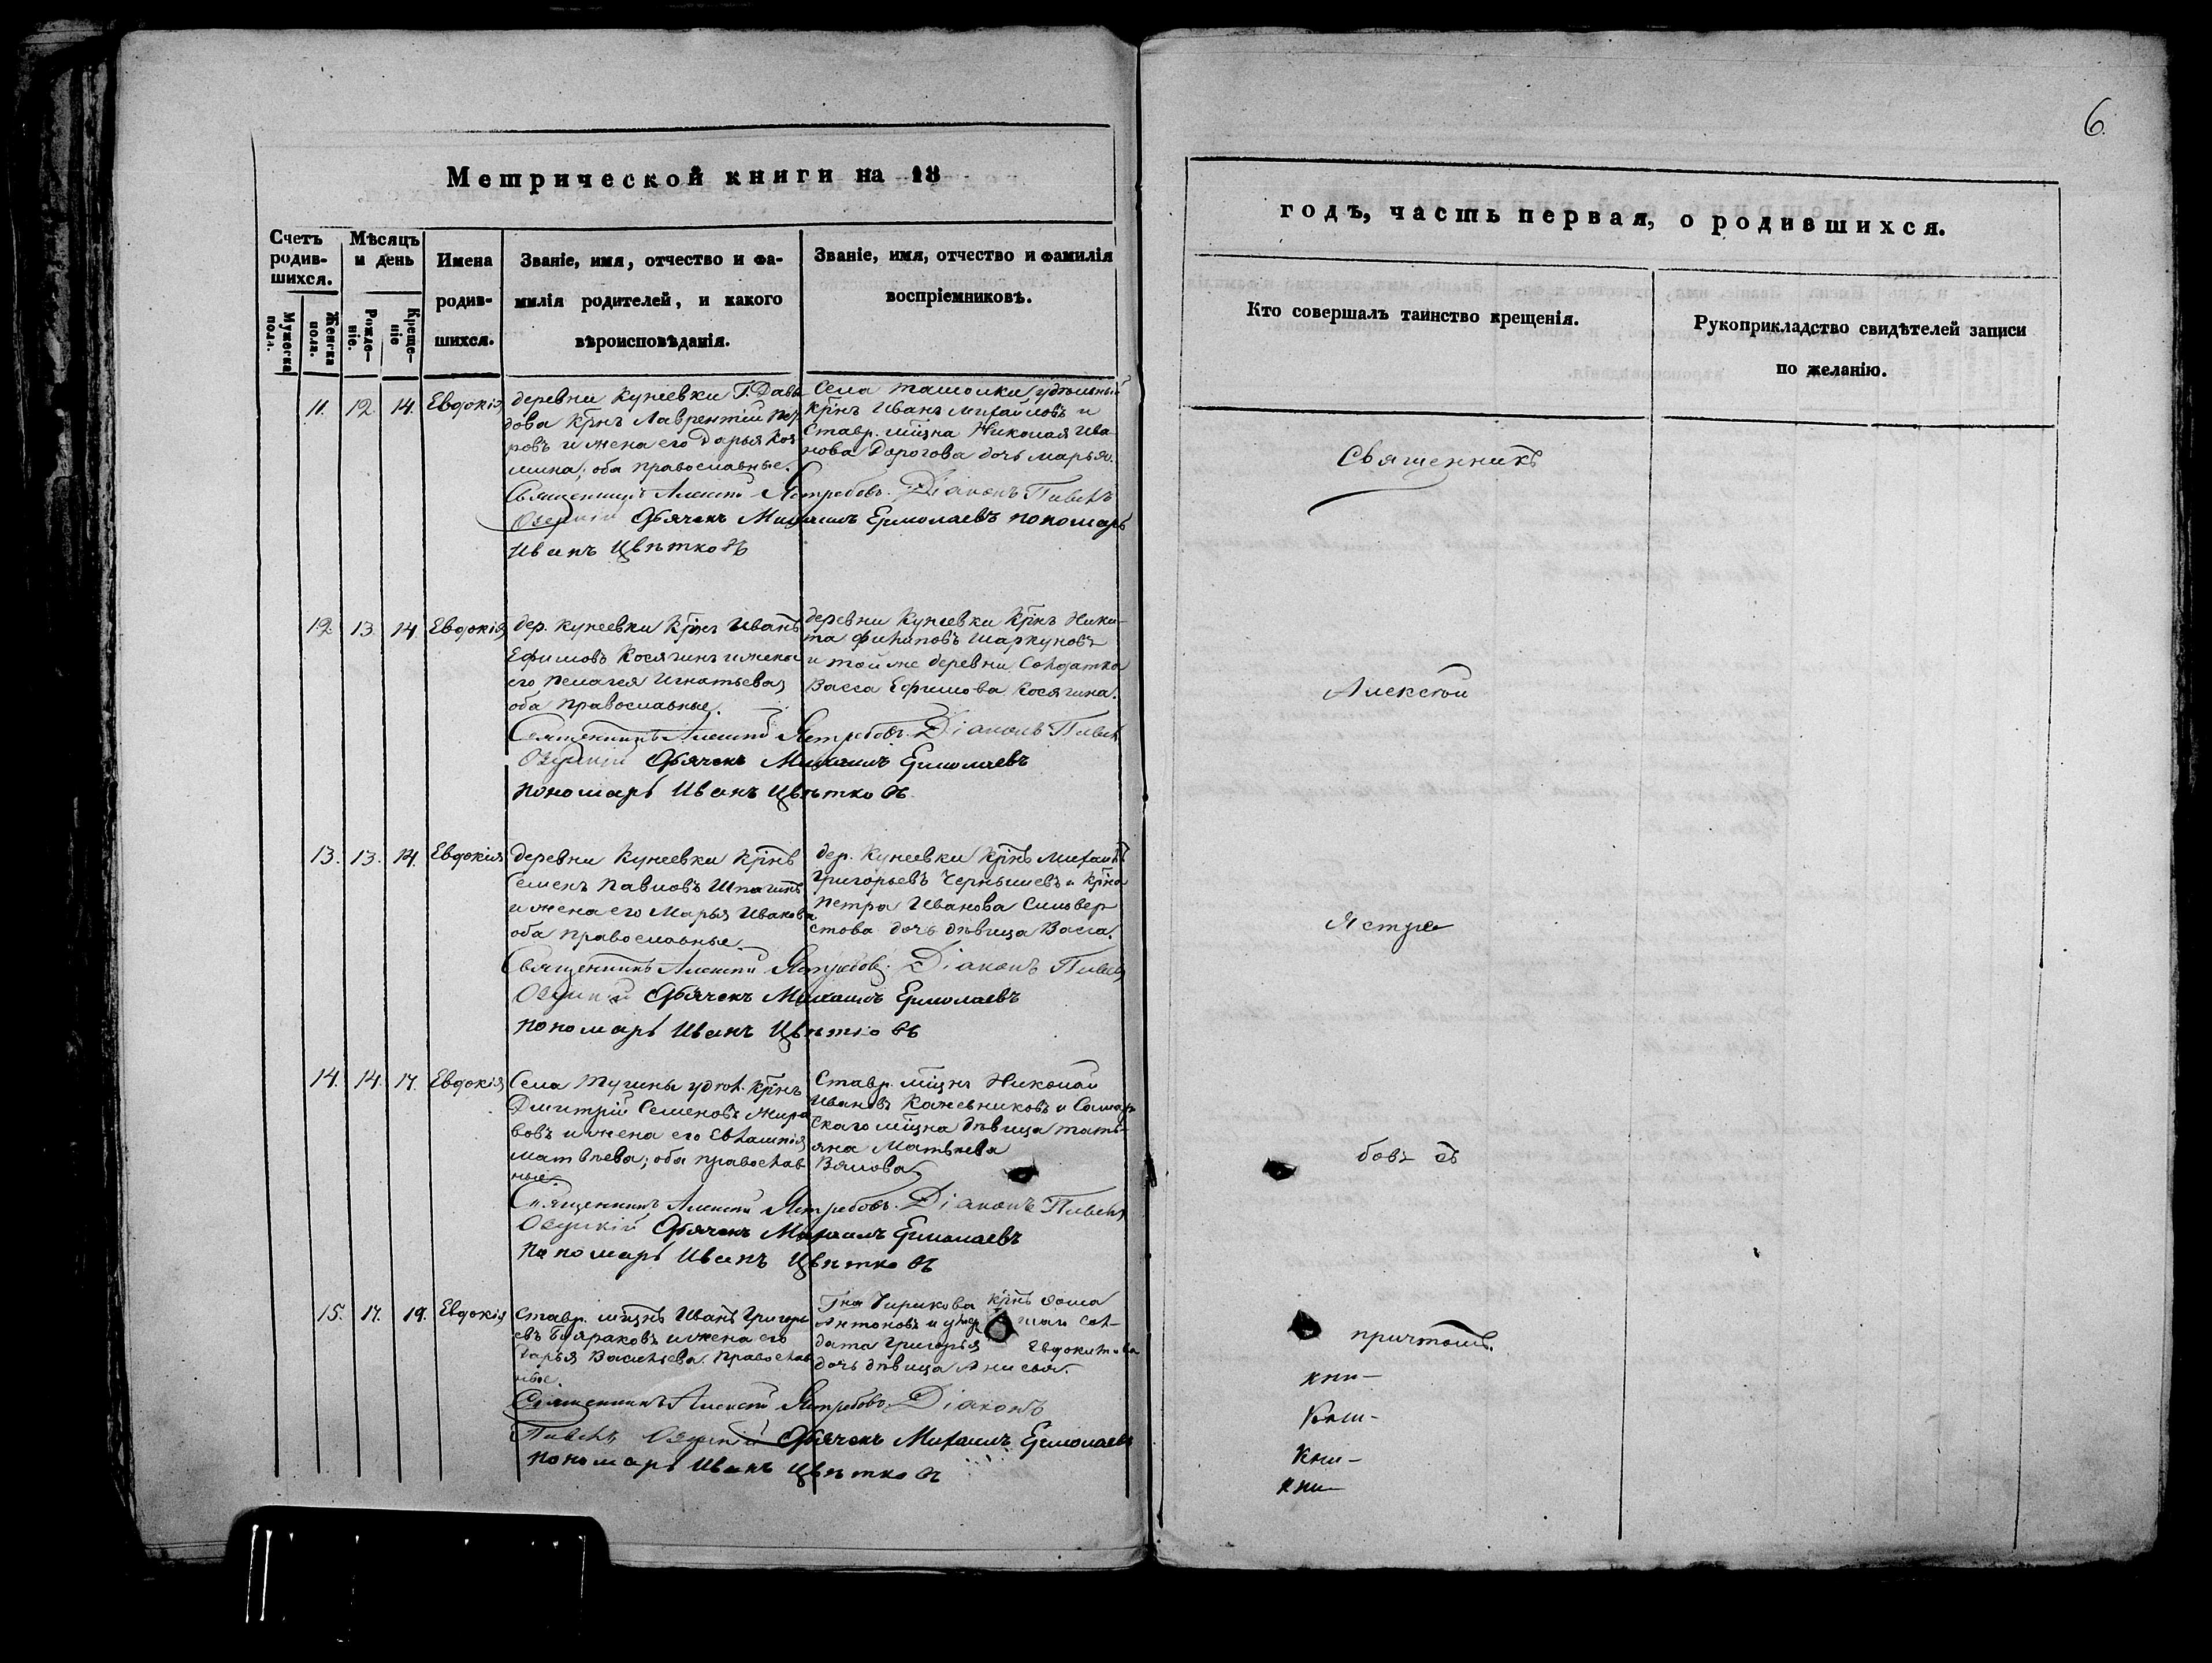 6.
Метрической книги на 18
годъ, часть первая, о родившихся.
Счетъ родившихся.
Мужеска пола.
Женска пола.
Мѣсяцъ и день
Рожде-ніе.
Креще-ніе
Имена родив-шихся.
Званіе, имя, отчество и фа-
милія родителей, и какого
вѣроисповѣданія.
Званіе, имя, отчество и фамилія
воспріемниковъ.
Кто совершалъ таинство крещенія.
Рукоприкладство свидѣтелей записи
по желанію.
11. 12. 14. Евдокія
деревни Кунеевки Г. Давы
дова Крнъ Лаврентій Пет
ровъ и жена его Дарья Коз
мина; оба православные.
Села Ташолки удѣльный
Крнъ Иванъ Михайловъ и
Ставр. мщна Николая Ива
нова Дорогова дочь Марья.
Священникъ Алексѣй Ястребовъ. Діаконъ Павелъ
Озерскій Дьячекъ Михаилъ Ермолаевъ пономарь
Иванъ Цвѣтковъ
12 13. 14 Евдокія
дер. Кунеевки Крнъ Иванъ
Ефимовъ Косягинъ и жена
его Пелагея Игнатьева,
оба православные.
деревни Кунеевки Крнъ Ники-
та Филиповъ Шаркуновъ
и той же деревни Солдатка
Васса Ефимова Косягина.
Священникъ Алексѣй Ястребовъ. Діаконъ Павелъ
Озерскій Дьячекъ Михаилъ Ермолаевъ
пономарь Иванъ Цвѣтковъ
13. 13. 14. Евдокія
деревни Кунеевки Крнъ
Семенъ Павловъ Шпагинъ
и жена его Марья Иванова
оба православные.
дер. Кунеевки Крнъ Михаилъ
Григорьевъ Чернышевъ и Крна
Петра Иванова Сильвер
стова дочь дѣвица Васса.
Священникъ Алексѣй Ястребовъ. Діаконъ Павелъ
Озерскій Дьячекъ Михаилъ Ермолаевъ
пономарь Иванъ Цвѣтковъ
14. 14. 17. Евдокія
Села удѣл. Крнъ
Дмитрій Семеновъ
и жена его Евлампія
Матвѣева; оба православ
ные.
Ставр. мщнъ Николай
Ивановъ Кожевниковъ и Самар
скаго мщна дѣвица Тать-
яна Матвѣева
Вялова
Священникъ Алексѣй Ястребовъ. Діаконъ Павелъ
Озерскій Дьячекъ Михаилъ Ермолаевъ
пономарь Иванъ Цвѣтковъ
15. 17. 19. Евдокія
Ставр. мщнъ Иванъ Григорь
евъ Буяраковъ и жена его
Дарья Васильева. Православ
ные.
Гна Чирикова крнъ Фома
Антоновъ и сол-
дата Григорья Евдокимова
дочь дѣвица Анисья.
Священникъ Алексѣй Ястребовъ Діаконъ
Павелъ Озерскій Дьячекъ Михаилъ Ермолаевъ
пономарь Иванъ Цвѣтковъ
Священникъ
Алексѣй
Ястре
бовъ съ
причтомъ.